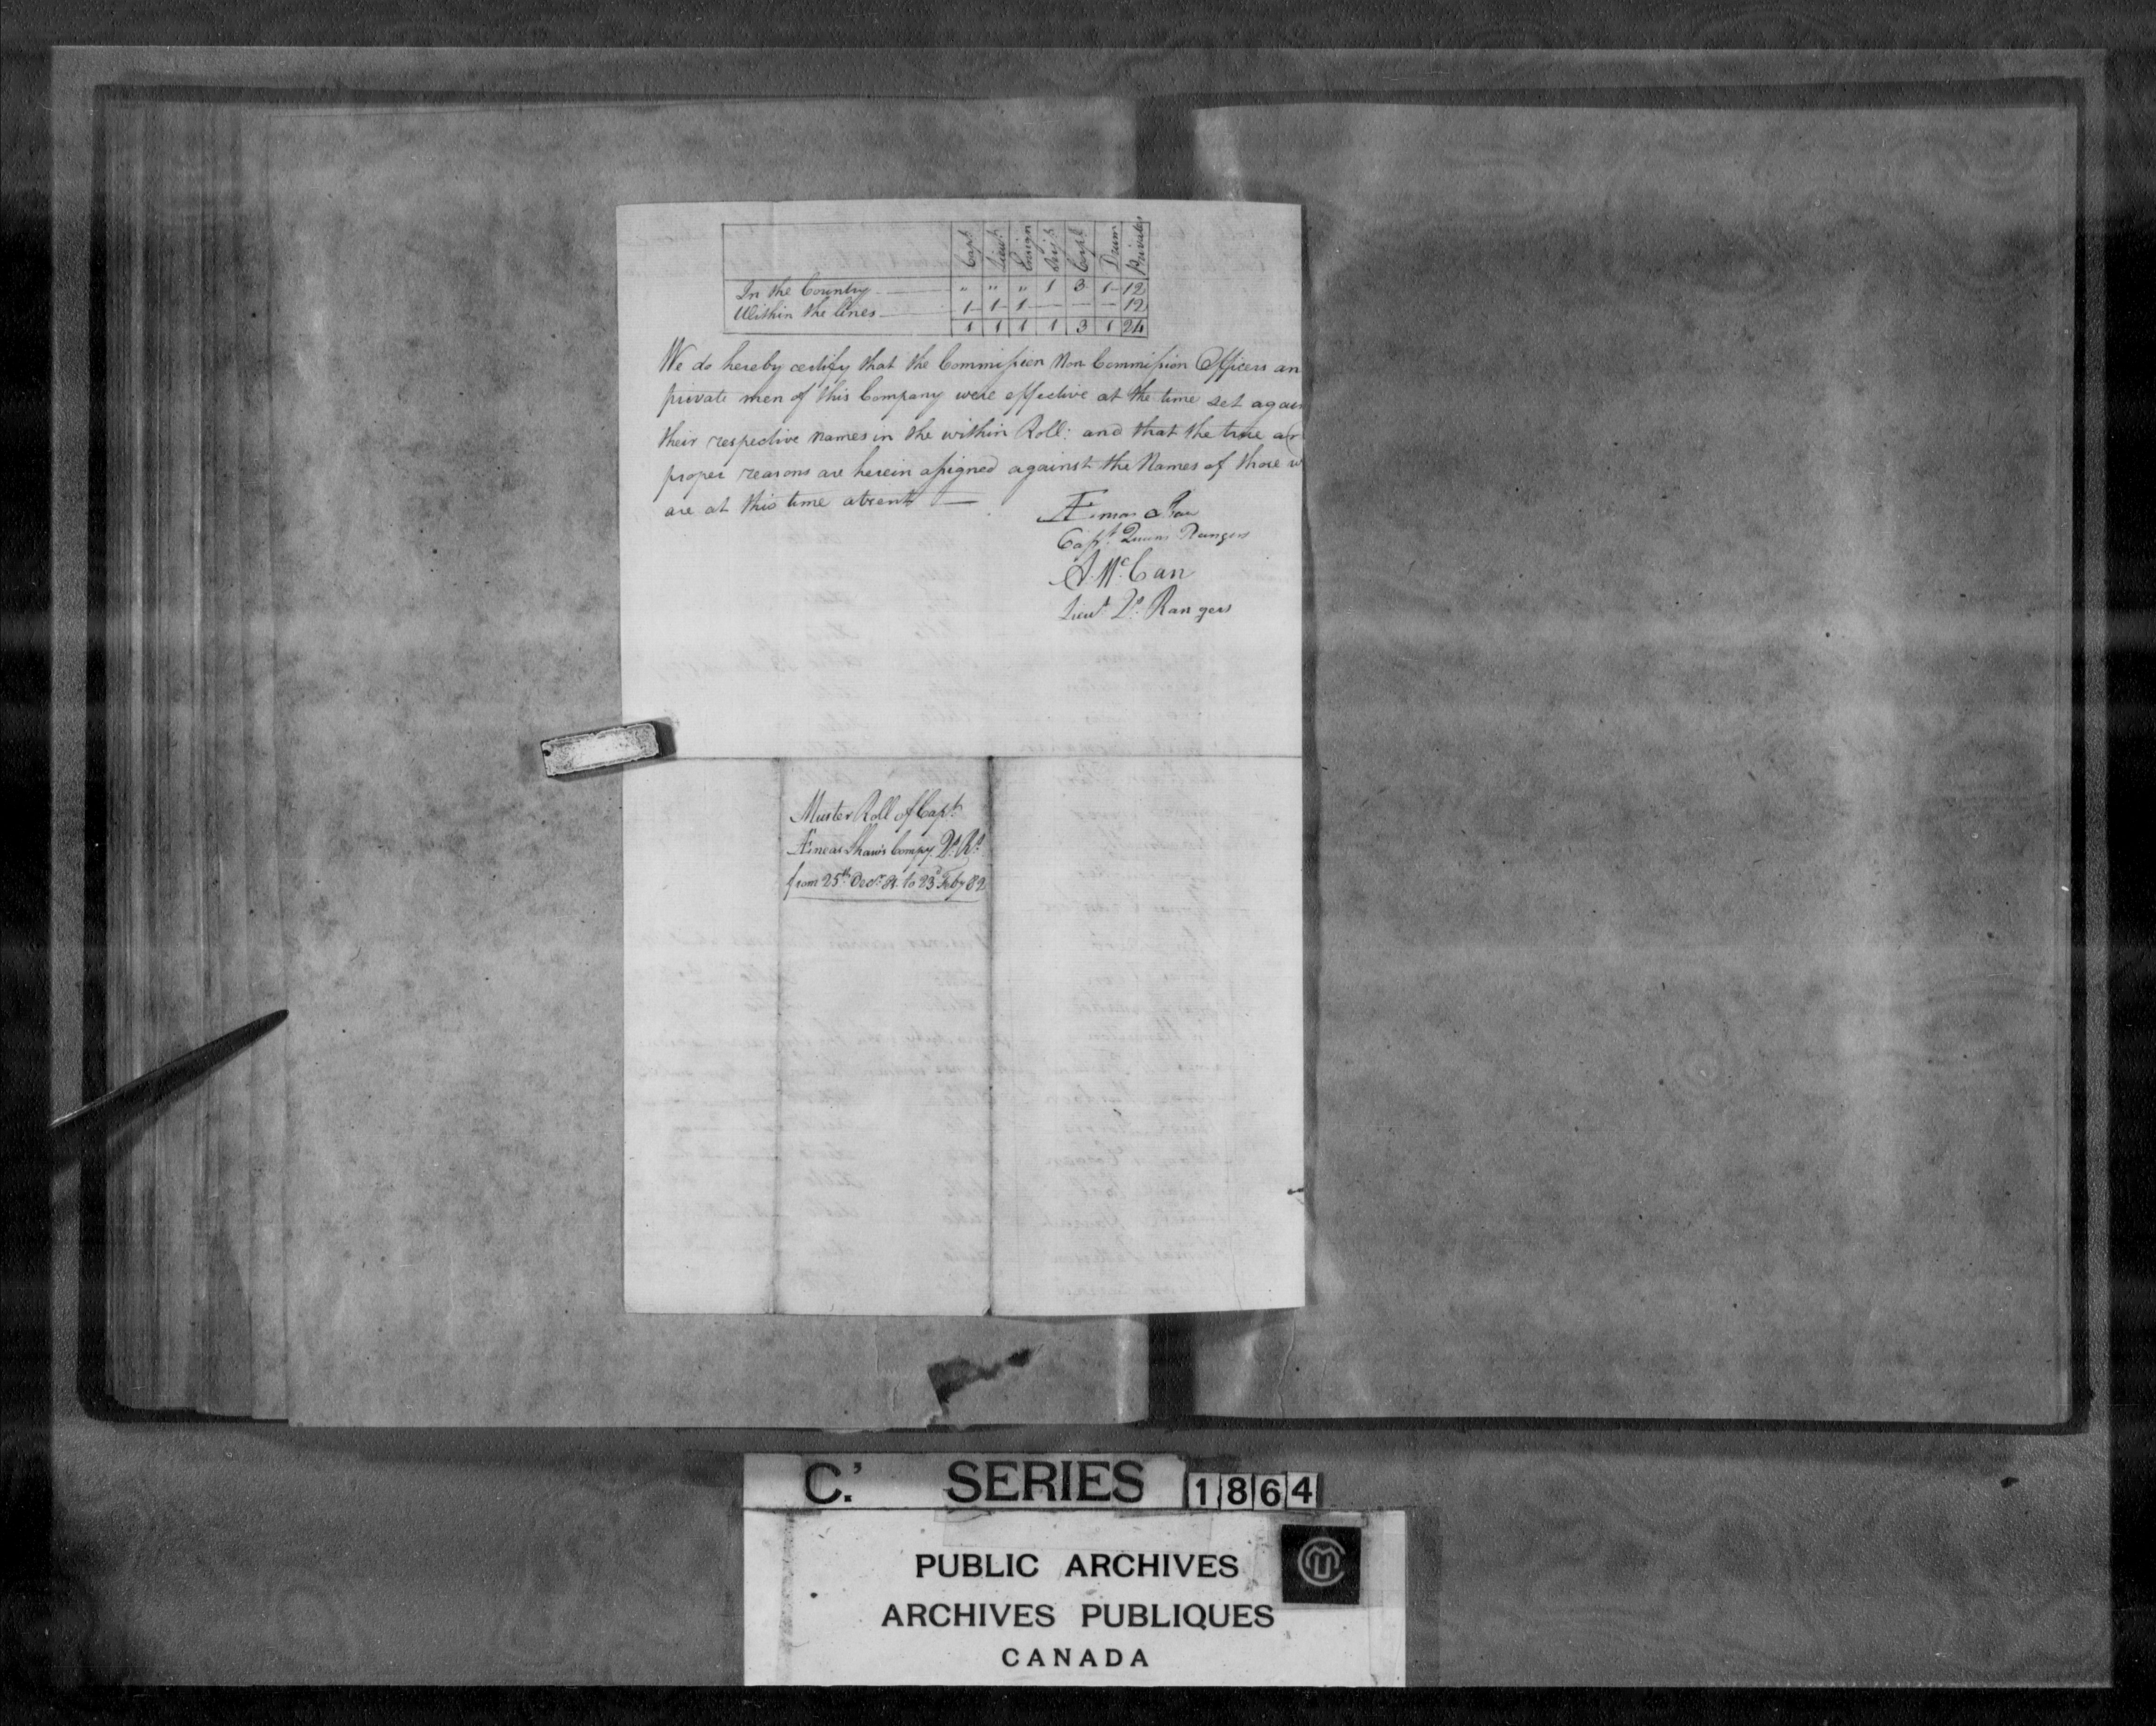 Capt Lieut Ensign Serjt Corpl Drum Privates
In the Country " " " 1 3 1 12
Within the lines 1 1 1 — — — 12
1 1 1 1 3 1 24
We do hereby certify that the Commission Non Commission Officers an
private men of this Company were effective at the time set again
their respective names in the within Roll: and that the true an
proper reasons are herein assigned against the Names of those w
are at this time absent —
Æneas Shaw
Capt. Queens Rangers
A. McCan
Lieut Qs. Rangers
Muster Roll of Capt
Æneas Shaw's Compy. Qs. Rs.
from 25th Decr. 81. to 23d Feby 82
C.' SERIES 1864
PUBLIC ARCHIVES
ARCHIVES PUBLIQUES
CANADA